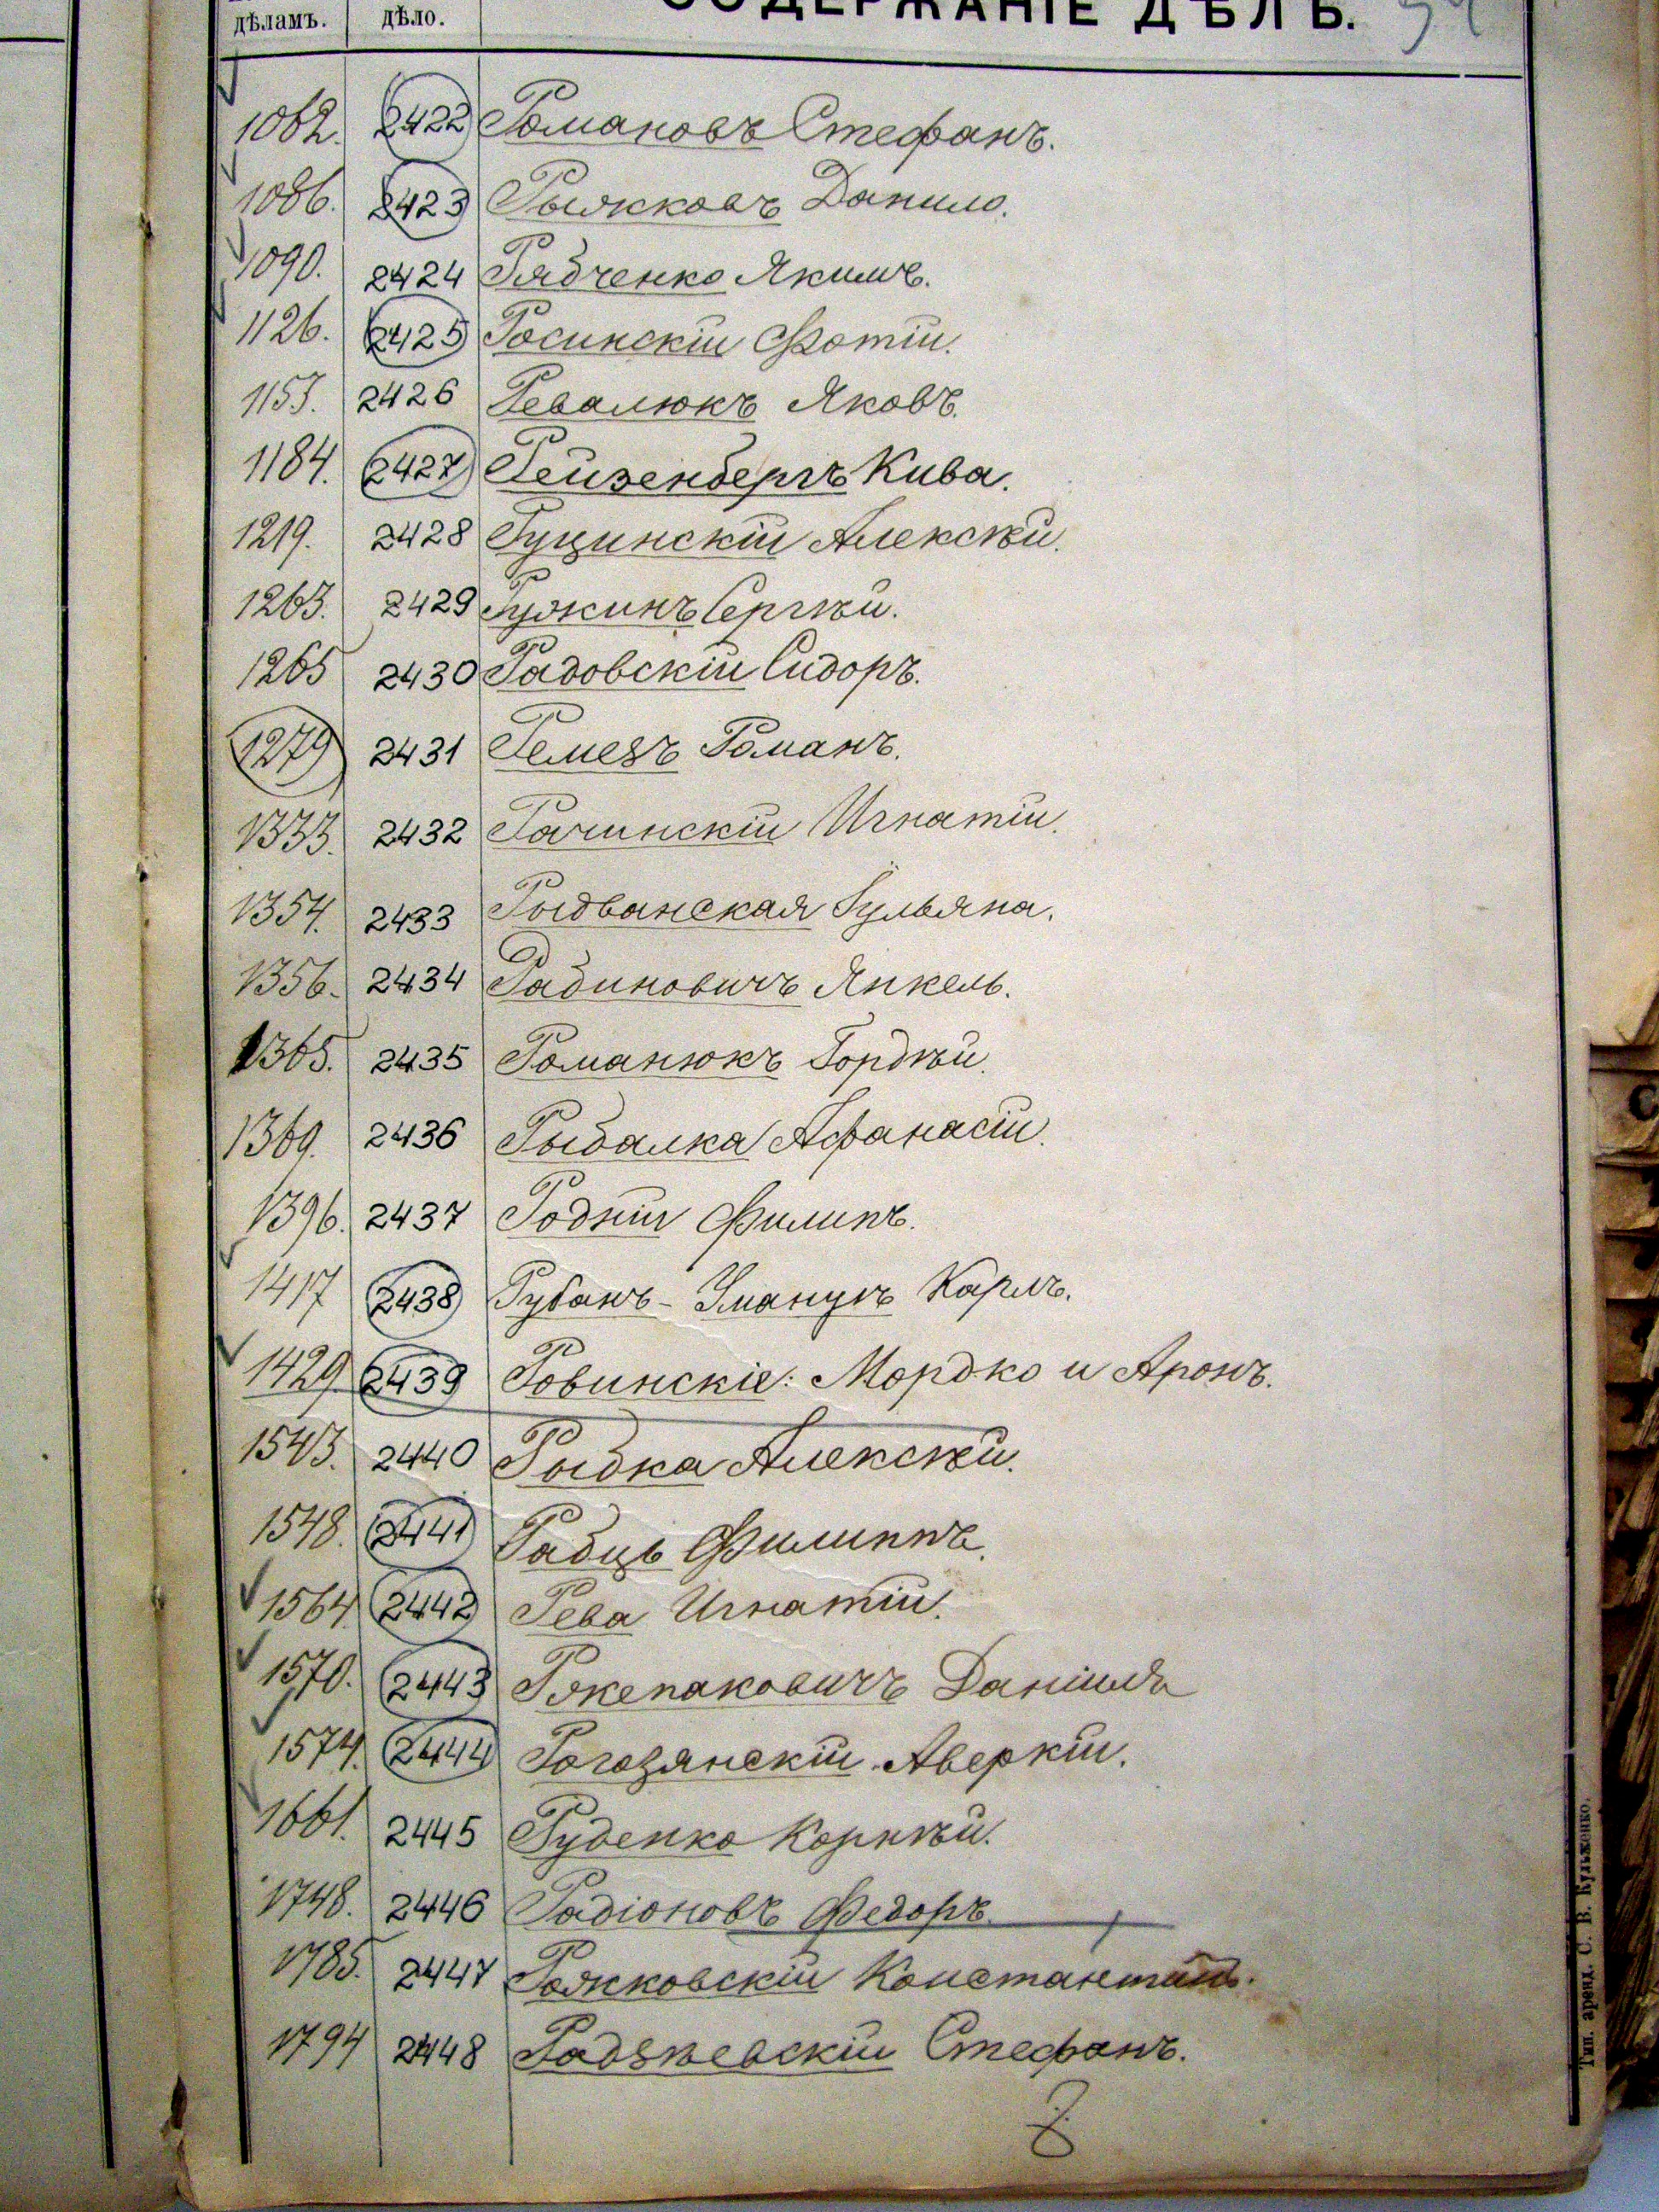 дѣламъ. дѣло. СОДЕРЖАНІЕ ДѢЛЪ.
1062. 2422 Романовъ Стефанъ.
1086. 2423 Рыжковъ Данило.
1090. 2424 Рябченко Якимъ.
1126. 2425 Росинскій Фотій.
1153. 2426 Ревалюкъ Яковъ.
1184. 2427 Рейзенбергъ Кива.
1219. 2428 Руцинскій Алексѣй.
1263. 2429 Ружинъ Сергѣй.
1265 2430 Радовскій Сидоръ.
1279 2431 Ремезъ Романъ.
1333. 2432 Рачинскій Игнатій.
1354. 2433 Рыдванская Ульяна.
1356. 2434 Рабиновичъ Янкель.
1365. 2435 Романюкъ Гордѣй.
1369. 2436 Рыбалка Афанасій.
1396. 2437 Родній Филипъ.
1417 2438 Рубанъ- Карлъ.
1429 2439 Ровинскіе: Мордко и Аронъ.
1543. 2440 Рыбка Алексѣй.
1548. 2441 Рабць Филиппъ.
1564 2442 Рева Игнатій.
1570. 2443 Ржепаковичъ Даніилъ
1574. 2444 Рогозянскій Аверкій.
1661. 2445 Руденко Корнѣй.
1748. 2446 Радіоновъ Федоръ.
1785. 2447 Рожковскій Константинъ.
1794 2448 Радзѣевскій Стефанъ.
Тип. аренд. С. В. Кульженко.